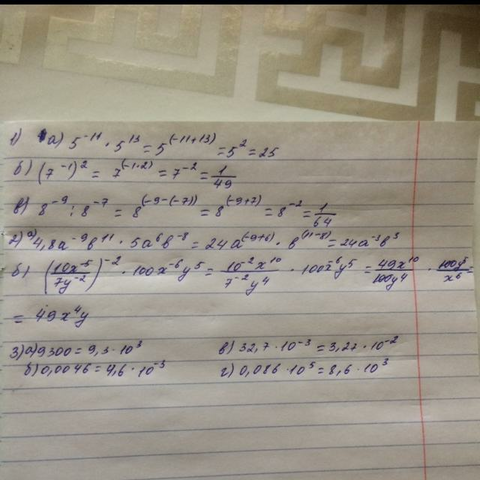 1) а) 5⁻¹¹ · 5¹³ = 5⁽⁻¹¹⁺¹³⁾ = 5² = 25
б) (7⁻¹)² = 7⁽⁻¹·²⁾ = 7⁻² = 1/49
в) 8⁻⁹ : 8⁻⁷ = 8⁽⁻⁹⁻⁽⁻⁷⁾⁾ = 8⁽⁻⁹⁺⁷⁾ = 8⁻² = 1/64
2) а) 4,8a⁻⁹b¹¹ · 5a⁶b⁻⁸ = 24a⁽⁻⁹⁺⁶⁾ · b⁽¹¹⁻⁸⁾ = 24a⁻³b³
б) (10x⁻⁵/7y⁻²)⁻² · 100x⁻⁶y⁵ = 10⁻²x¹⁰/7⁻²y⁴ · 100x⁻⁶y⁵ = 49x¹⁰/100y⁴ · 100y⁵/x⁶ =
= 49x⁴y
3) а) 9300 = 9,3 · 10³ в) 32,7 · 10⁻³ = 3,27 · 10⁻²
б) 0,0046 = 4,6 · 10⁻³ г) 0,086 · 10⁵ = 8,6 · 10³